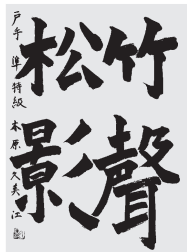 竹聲
松影
戸手 準特級 本原久美江